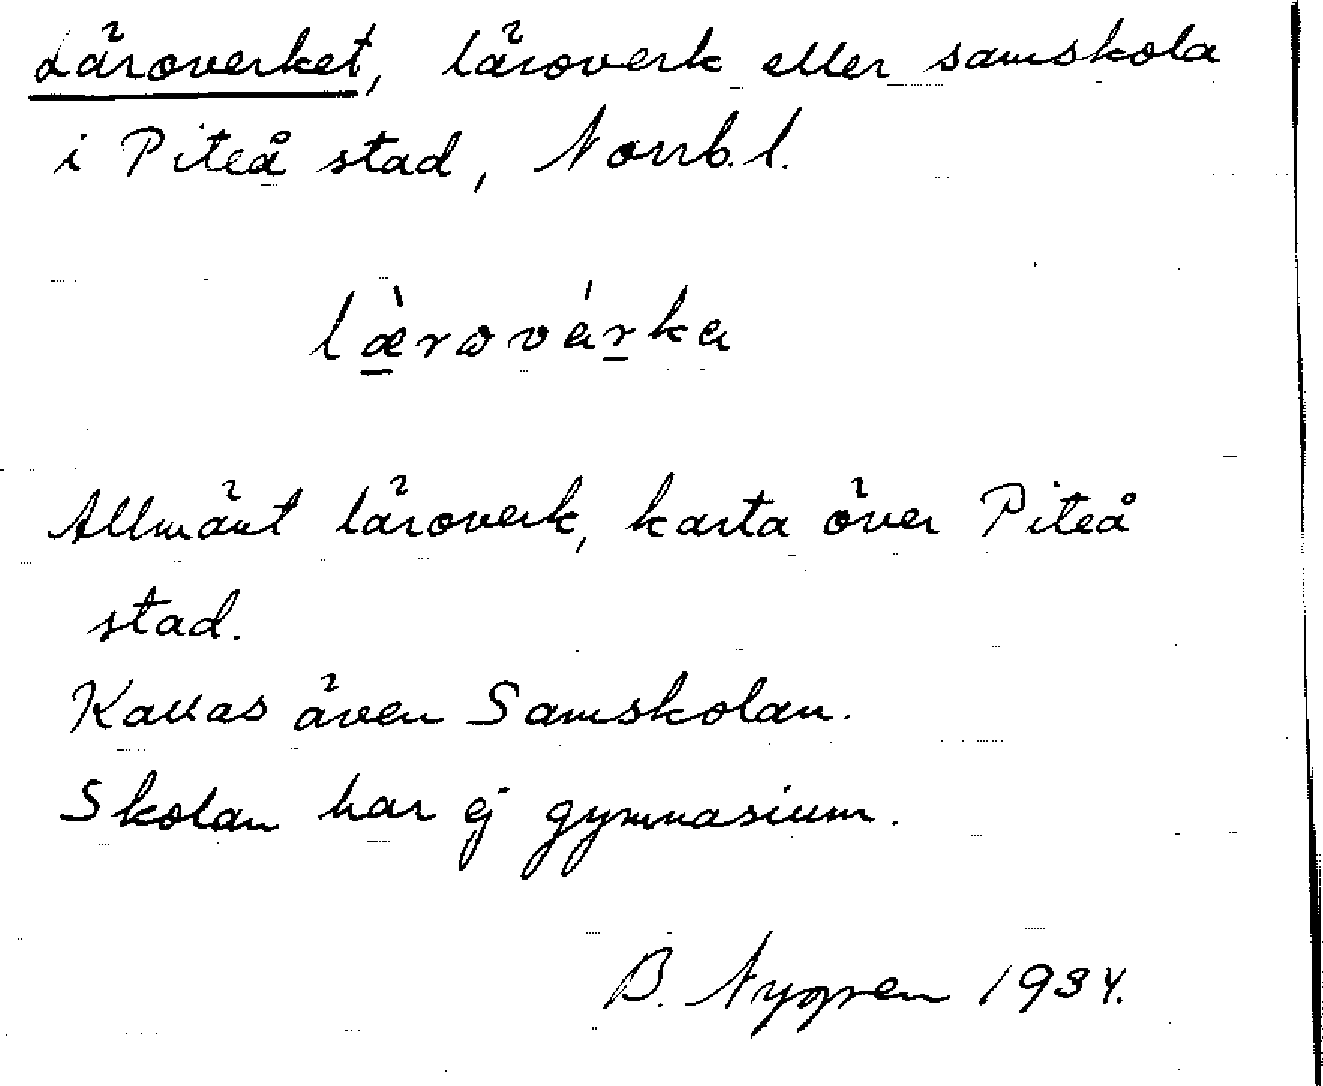 Läroverket, läroverk eller samskola
i Piteå stad, Norrb. l.
læ̀rovárka
Allmänt läroverk, karta över Piteå
stad.
Kallas även Samskolan.
Skolan har ej gymnasium.
B. Nygren 1934.